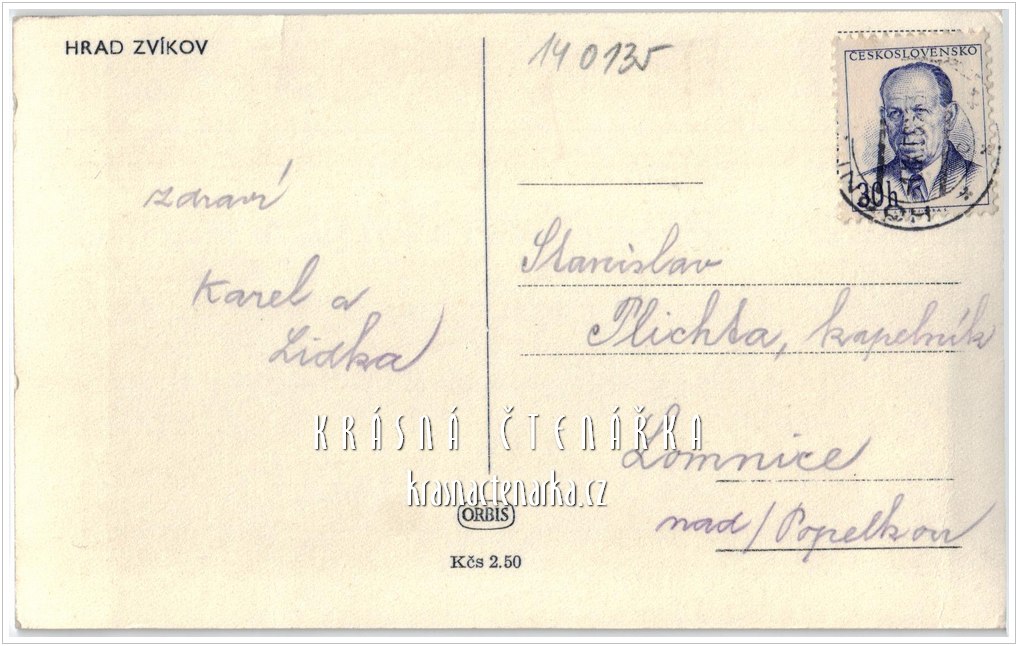 HRAD ZVÍKOV
140135
ČESKOSLOVENSKO
30h
zdraví
Karel a
Lidka
Stanislav
Plichta, kapelník
Lomnice
nad/Popelkou
KRÁSNÁ ČTENÁŘKA
krasnactenarka.cz
ORBIS
Kčs 2.50